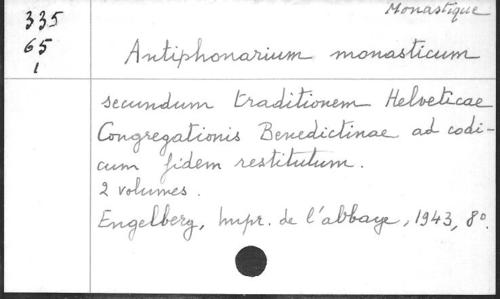 Monastique
335
65
1
Antiphonarium monasticum
secundum traditionem Helveticae
Congregationis Benedictinae ad codi-
cum fidem restitutum.
2 volumes.
Engelberg, Impr. de l'abbaye, 1943, 8º.